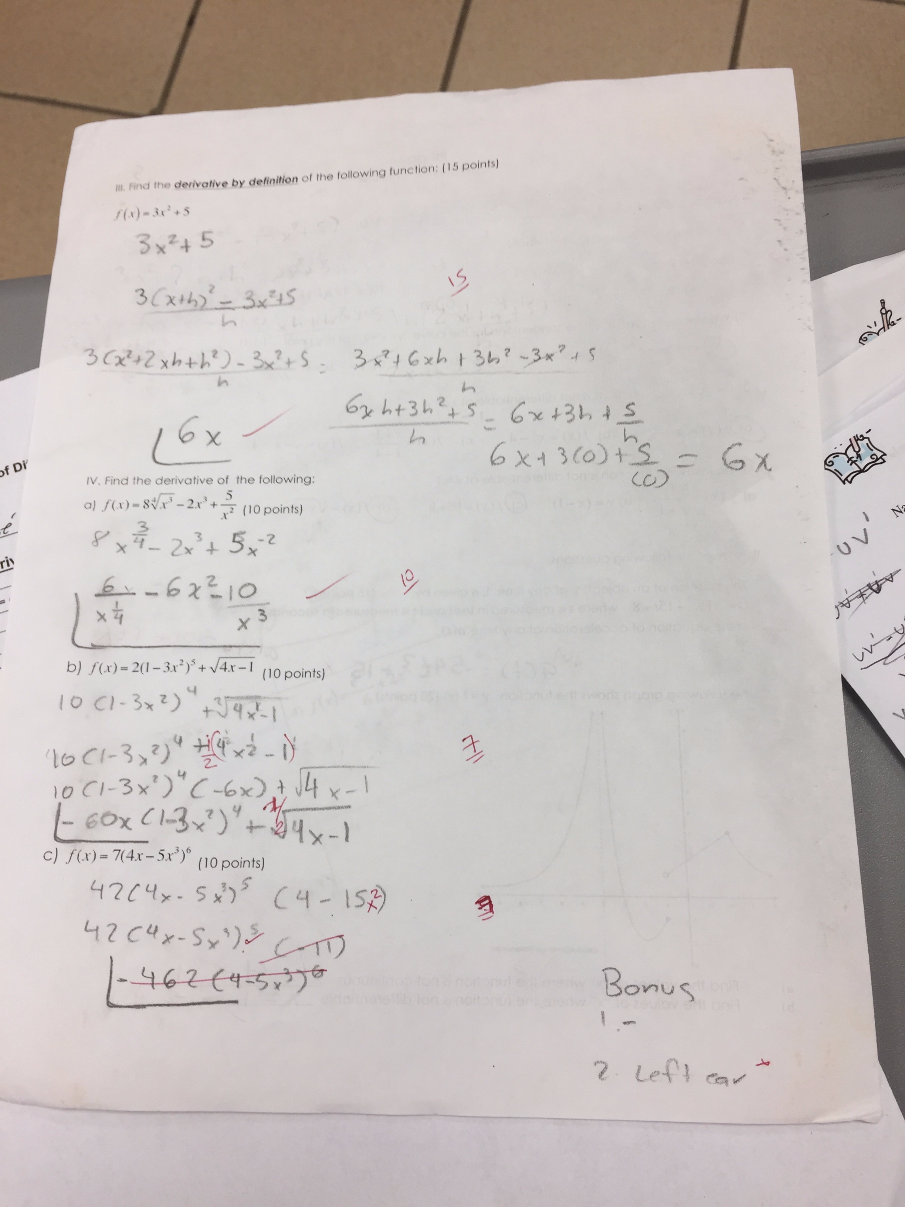 III. Find the derivative by definition of the following function: (15 points)
f(x)=3x²+5
3x²+5
15
3(x+h)² - 3x²+5
h
3(x²+2xh+h²)-3x²+5 = 3x²+6xh+3h²-3x²+5
h h
6xh+3h²+5 = 6x+3h+5
h h
6x
6x+3(0)+5 = 6x
(0)
IV. Find the derivative of the following:
a) f(x)=8∜x³-2x³+5/x² (10 points)
8x^3/4-2x³+5x⁻²
10
6/x^1/4 -6x²-10/x³
b) f(x)=2(1-3x²)⁵+√4x-1 (10 points)
10(1-3x²)⁴+²√4x¹-1
10(1-3x²)⁴
7
10(1-3x²)⁴(-6x)+√4x-1
-60x(1-3x²)⁴+√4x-1
c) f(x)=7(4x-5x³)⁶ (10 points)
42(4x-5x³)⁵ (4-15x²)
42(4x-5x³)⁵ (-11)
-462(4-5x³)⁶
Bonus
1.-
2. Left ear
of Di